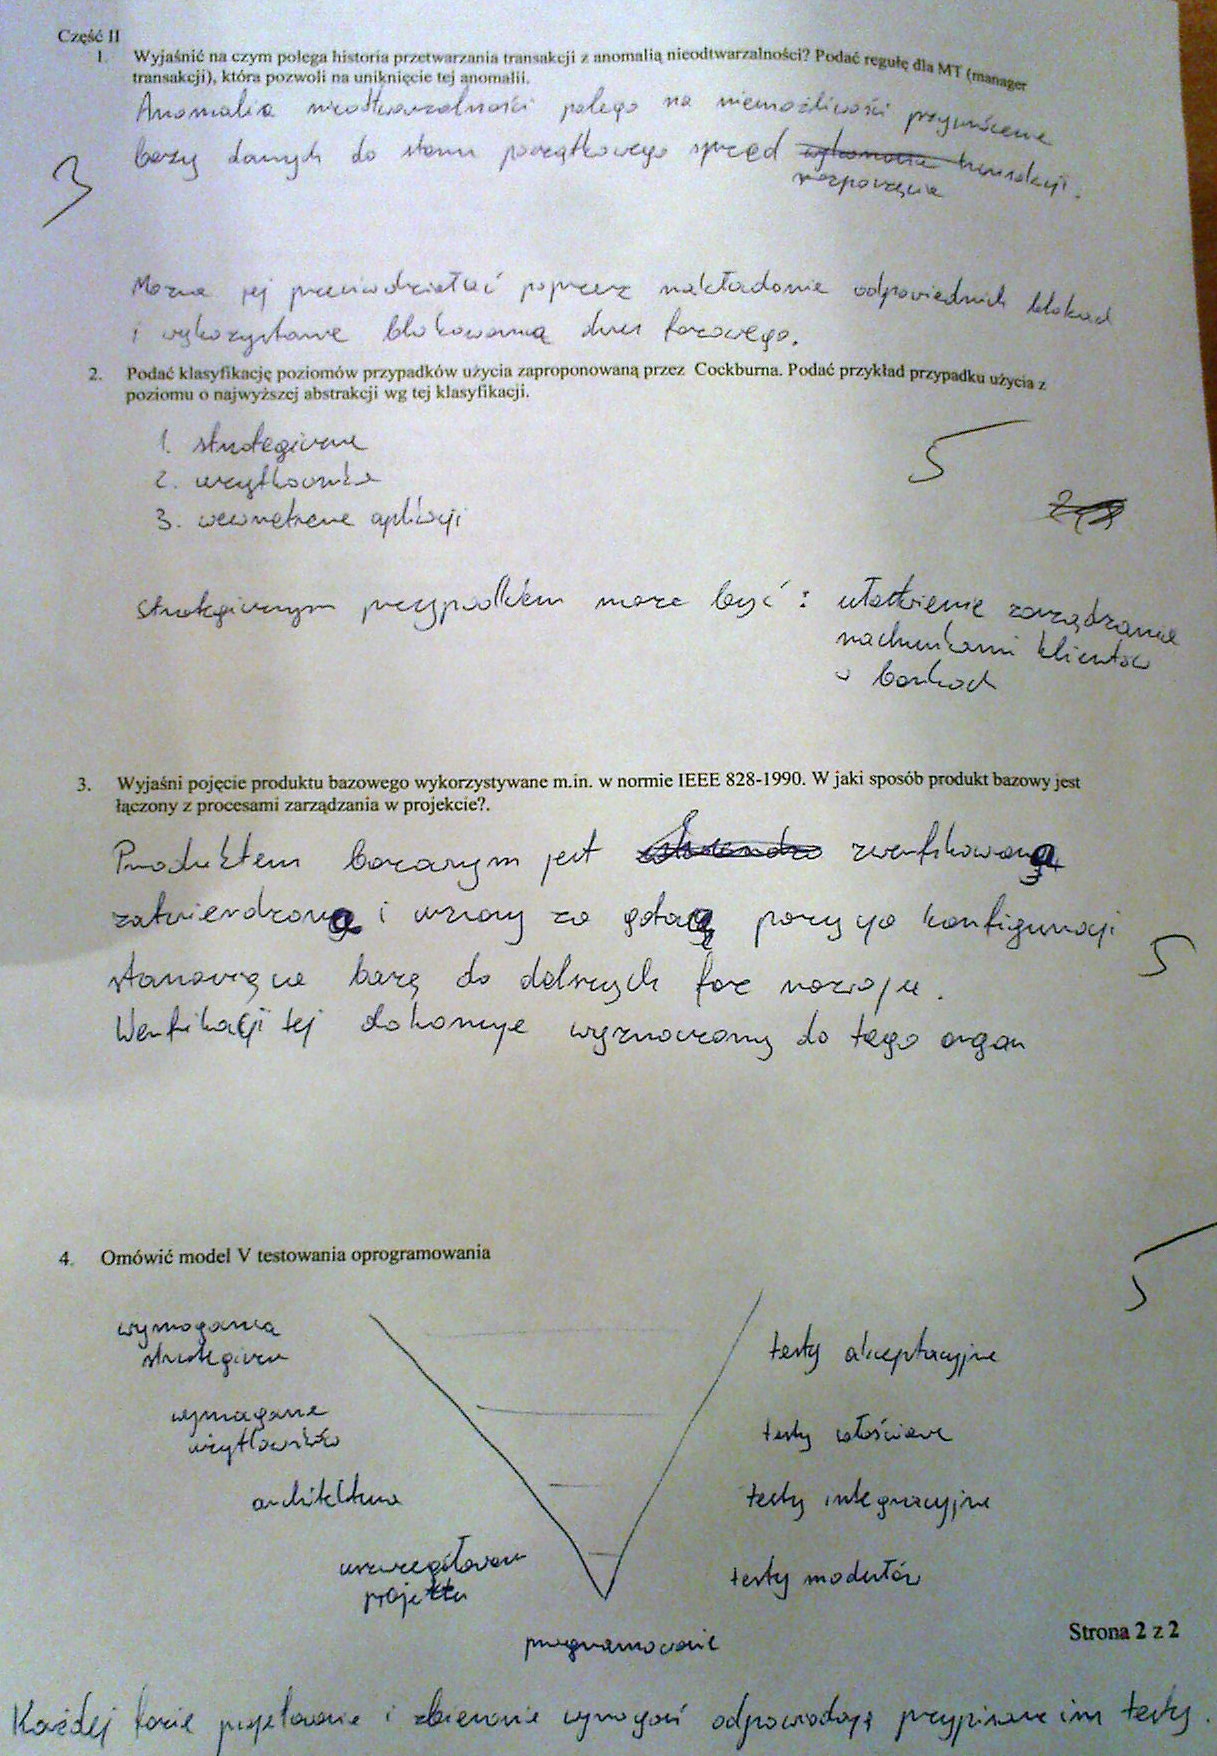 Część II
1. Wyjaśnić na czym polega historia przetwarzania transakcji z anomalią nieodtwarzalności? Podać regułę dla MT (manager
transakcji), która pozwoli na uniknięcie tej anomalii.
Anomalia nieodtwarzalności polega na niemożliwości przywrócenia
bazy danych do stanu początkowego sprzed wykonania transakcji.
rozpoczęcia
3
Można jej przeciwdziałać poprzez nakładanie odpowiednich blokad
i wykozystanie blokowania dwu fazowego.
2. Podać klasyfikację poziomów przypadków użycia zaproponowaną przez Cockburna. Podać przykład przypadku użycia z
poziomu o najwyższej abstrakcji wg tej klasyfikacji.
1. strategiczne
2. użytkownika
3. wewnętrzne aplikacji
5
Strategicznym przypadkiem może być: ułatwienie zarządzania
rachunkami klientów
w bankach
3. Wyjaśni pojęcie produktu bazowego wykorzystywane m.in. w normie IEEE 828-1990. W jaki sposób produkt bazowy jest
łączony z procesami zarządzania w projekcie?.
Produktem bazowym jest zweryfikowaną
zatwierdzoną i uznany za gotową pozycja konfiguracji
stanowiąca bazę do dalszych faz rozwoju.
Weryfikacji tej dokonuje wyznaczony do tego organ
5
4. Omówić model V testowania oprogramowania
5
wymagania testy akceptacyjne
strategiczne
wymagania testy całościowe
użytkowników
architektura testy integracyjne
uszczegółowienie testy modułów
projektu
programowanie
Strona 2 z 2
Każdej fazie projektowania i zbierania wymagań odpowiadają przypisane im testy.